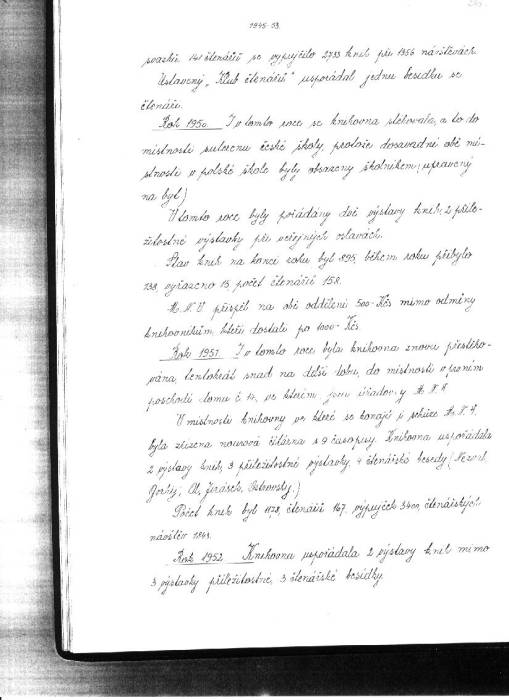 1945-53.
svazků. 141 čtenářů se vypůjčilo 2733 knih při 1356 návštěvách.
Ustavený „Klub čtenářů" uspořádal jednu besídku se
čtenáři.
Rok 1950. I v tomto roce se knihovna stěhovala, a to do
místnosti suterenu české školy, protože dosavadní obě mí-
stnosti v polské škole byly obsazeny školníkem (upravený
na byt.)
V tomto roce byly pořádány dvě výstavy knih, 2 příle-
žitostné výstavky při veřejných oslavách.
Stav knih na konci roku byl 895, během roku přibylo
238, vyřazeno 13, počet čtenářů 158.
M.N.V. přispěl na obě oddělení 500-Kčs mimo odměny
knihovníkům, kteří dostali po 1000-Kčs.
Rok 1951. I v tomto roce byla knihovna znovu přestěho-
vána, tentokrát snad na delší dobu, do místnosti v prvním
poschodí domu č. 14, ve kterém jsou úřadovny M.N.V.
V místnosti knihovny ve které se konají i schůze M.N.V.
byla zřízena nouzová čítárna s 9 časopisy. Knihovna uspořádala
2 výstavy knih, 3 příležitostné výstavky, 4 čtenářské besedy (Nezval
Gorkij, Al. Jirásek, Ostrovský.)
Počet knih byl 1128, čtenářů 167, výpujček 3400, čtenářských
návštěv 1843.
Rok 1952. Knihovna uspořádala 2 výstavy knih mimo
3 výstavky příležitostné, 3 čtenářské besídky